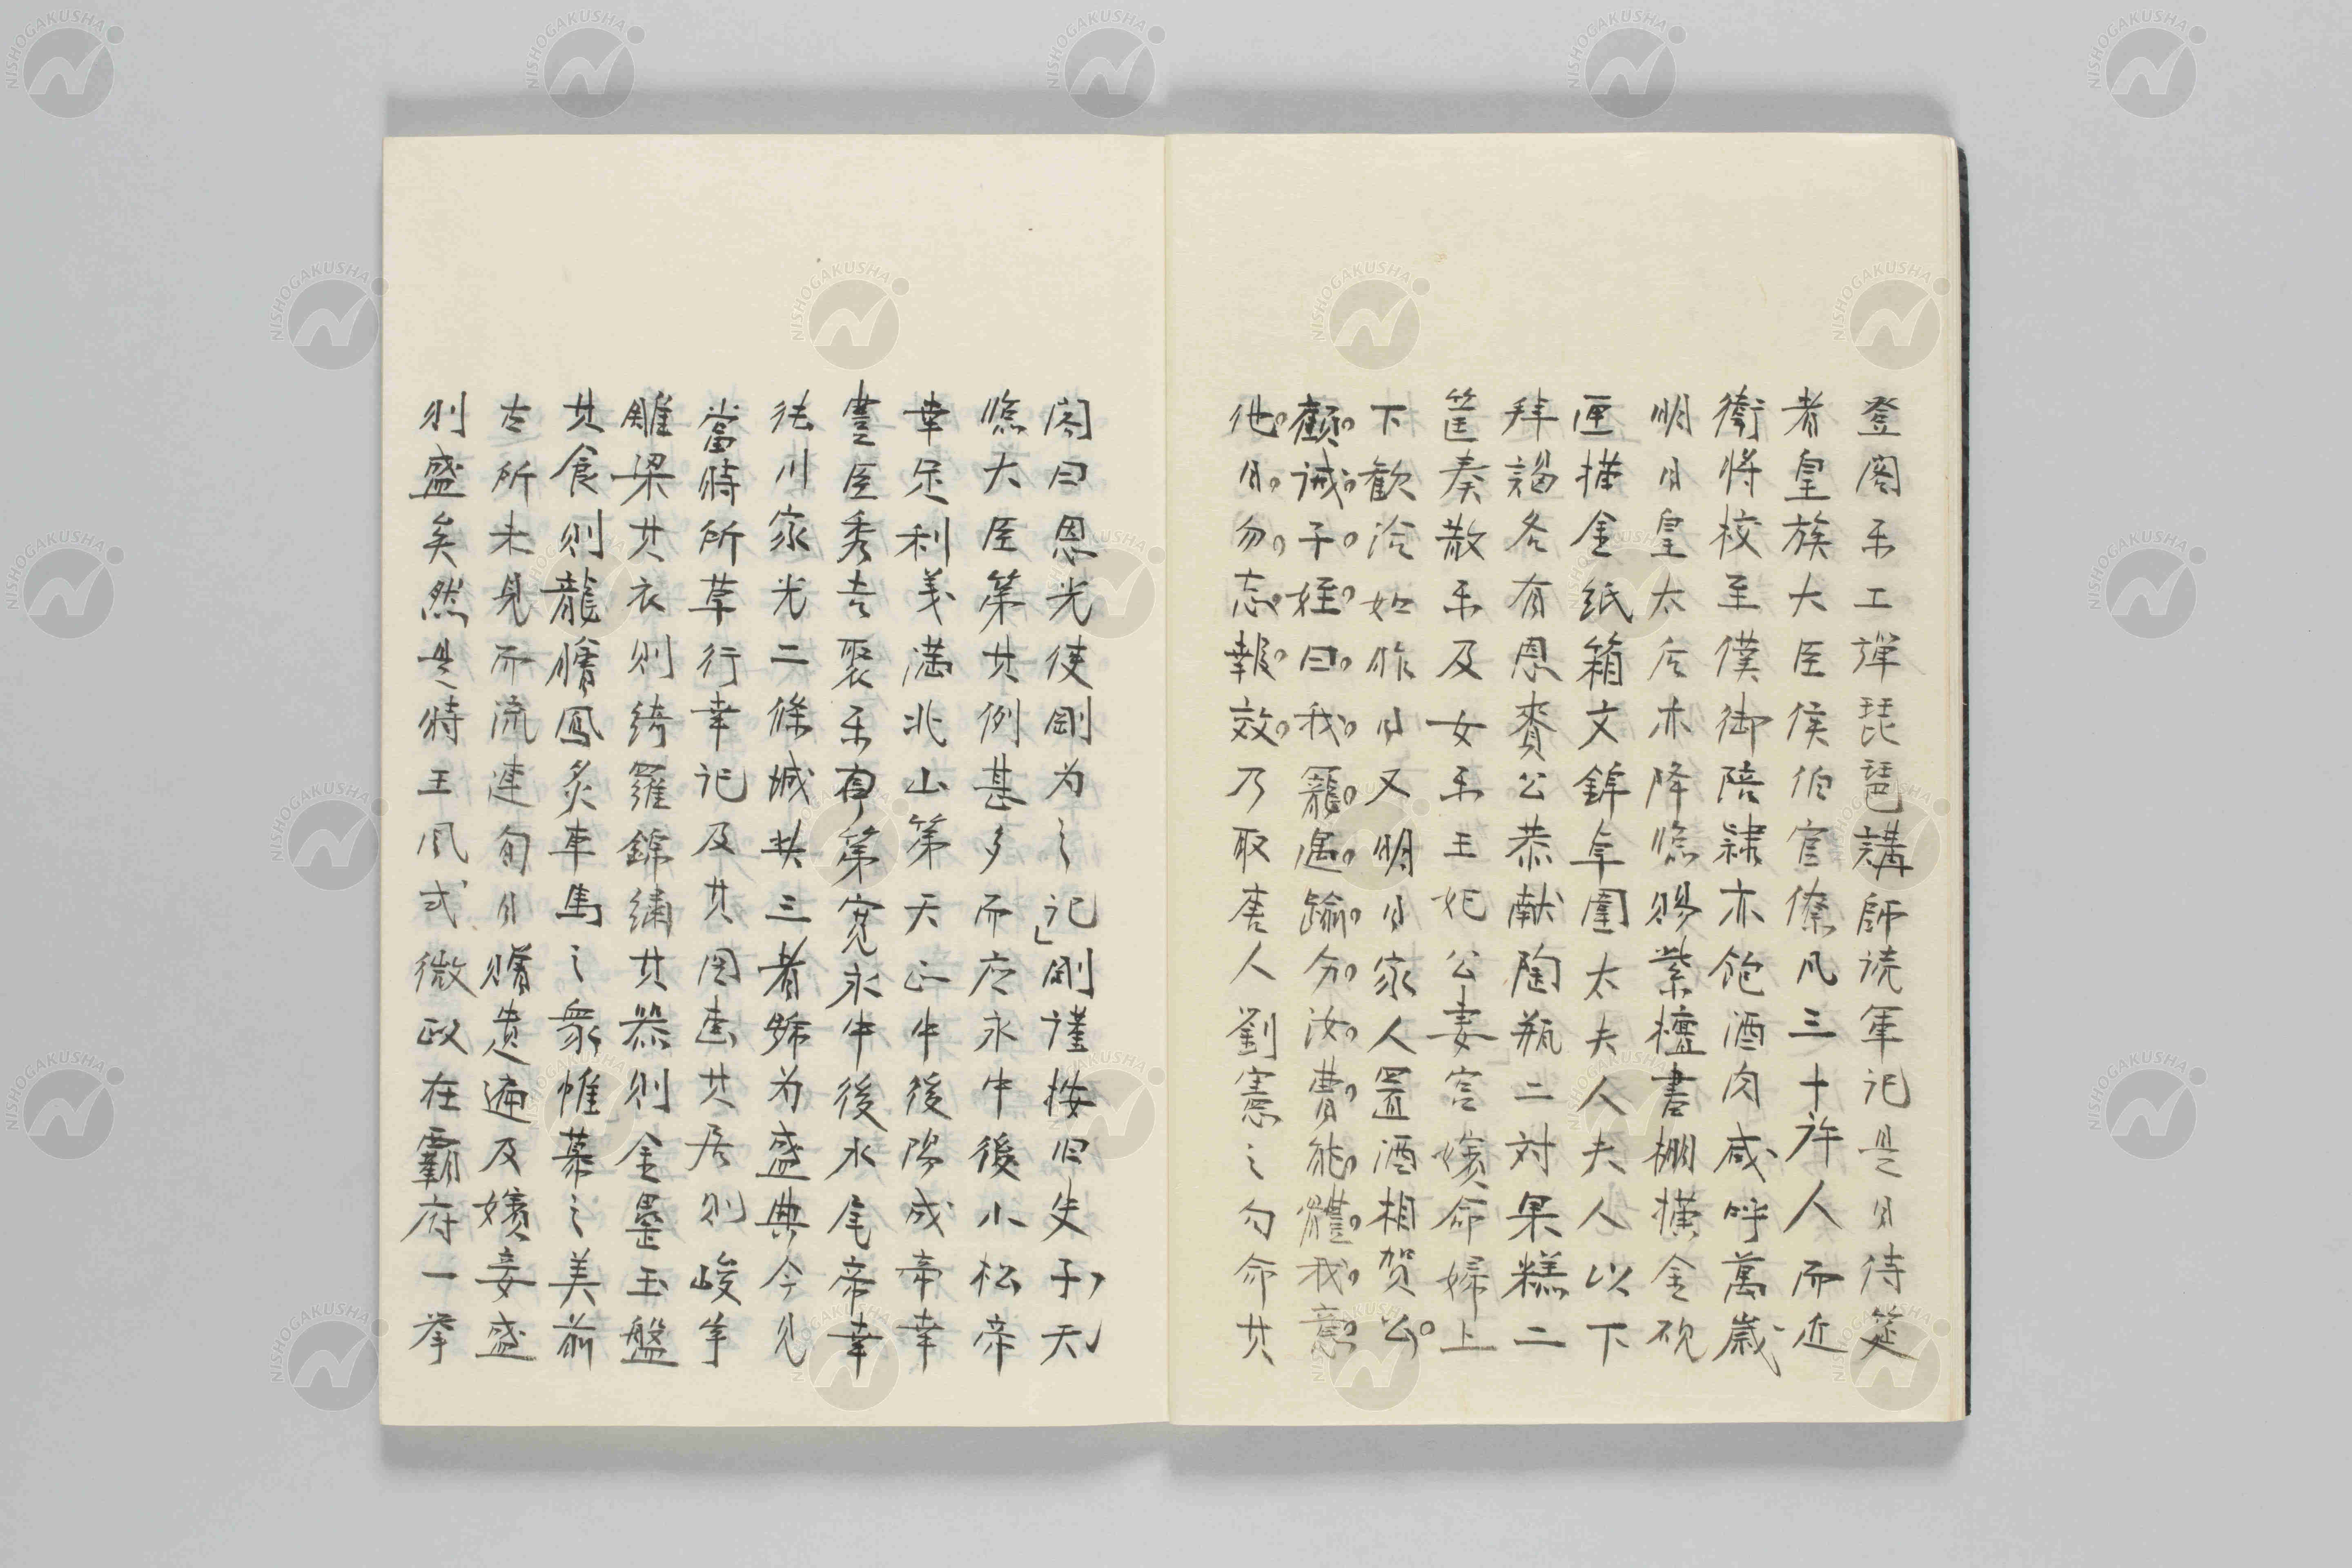 登閣樂工彈琵琶講師読軍記是日待筵
者皇族大臣侯伯官僚凡三十許人而近
衛将校至僕御陪隷亦飽酒肉咸呼萬歳
明日皇太后亦降臨賜紫檀書棚攅金硯
匣攅金紙箱文錦卓圍太夫人夫人以下
拜謁各有恩賚公恭献陶瓶二対果糕二
筐奏散樂及女樂王妃公妻宮嬪命婦上
下歓洽如昨日又明日家人置酒相賀公
顧誡子姪曰我寵遇踰分汝曹能體我意
他日勿忘報效乃取唐人劉憲之句命其
閣曰恩光使剛为之記」剛謹按旧史天子
臨大臣第其例甚多而応永中後小松帝
幸足利義満北山第天正中後陽成帝幸
豊臣秀吉聚樂第寛永中後水尾帝幸
徳川家光二條城此三者號为盛典今見
當時所草行幸記及其图畫其居則峻宇
雕梁其衣則綺羅錦繍其器則金罍玉盤
其食則龍膾鳳炙車馬之衆帷幕之美前
古所未見而流連旬日賻遺遍及嬪妾盛
則盛矣然是時王風式微政在霸府一挙
NISHOGAKUSHA